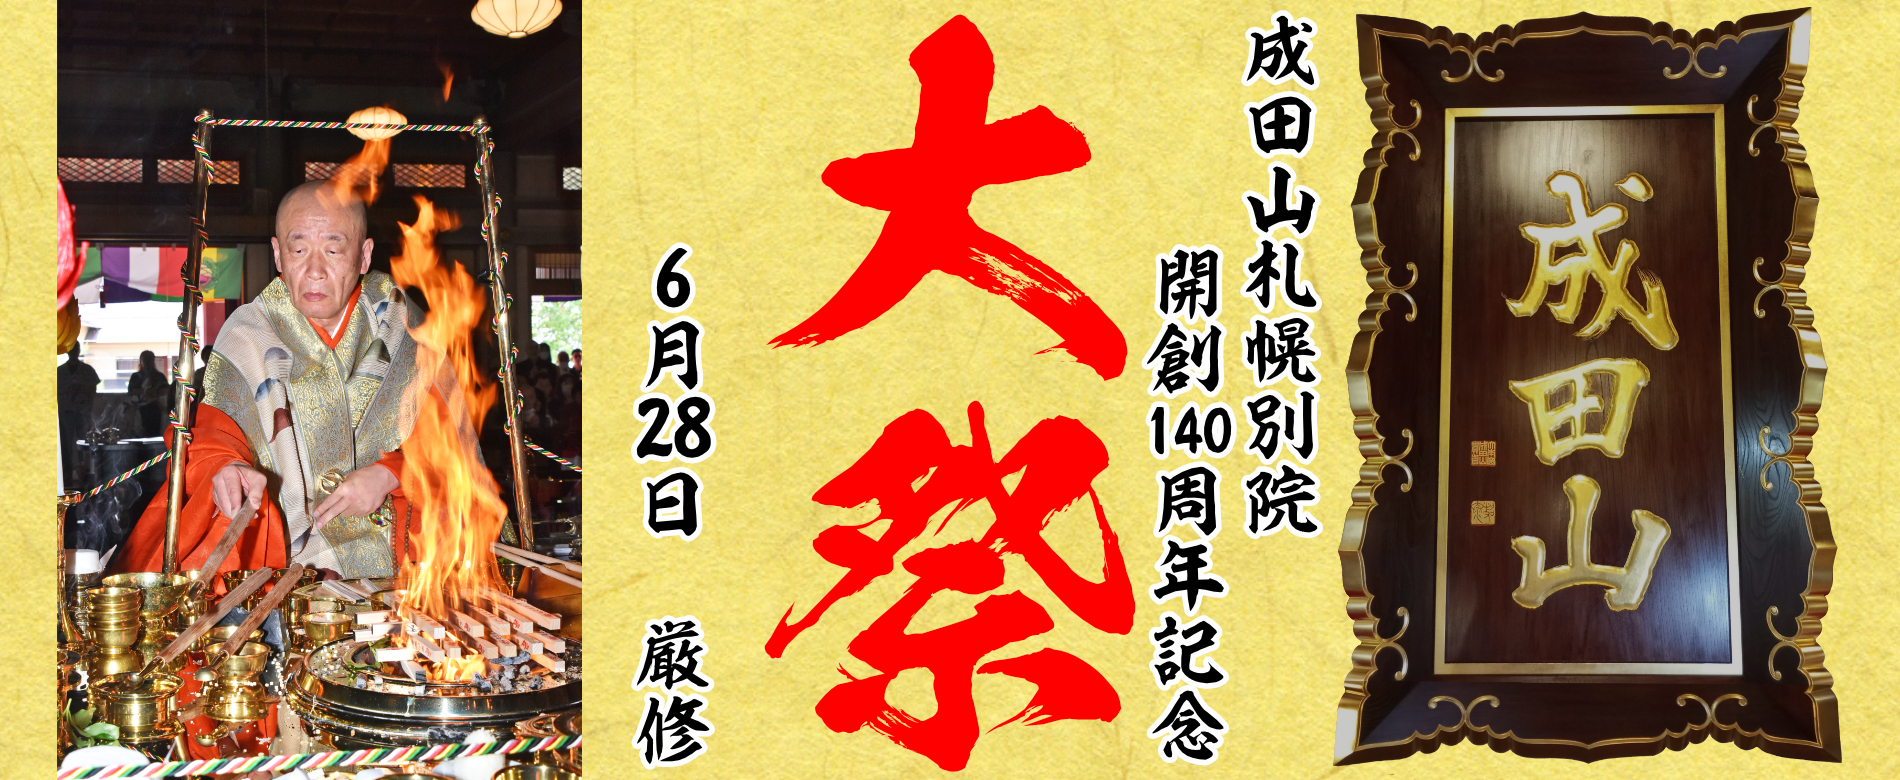 成田山
成田山札幌別院
開創140周年記念
大祭
6月28日 厳修